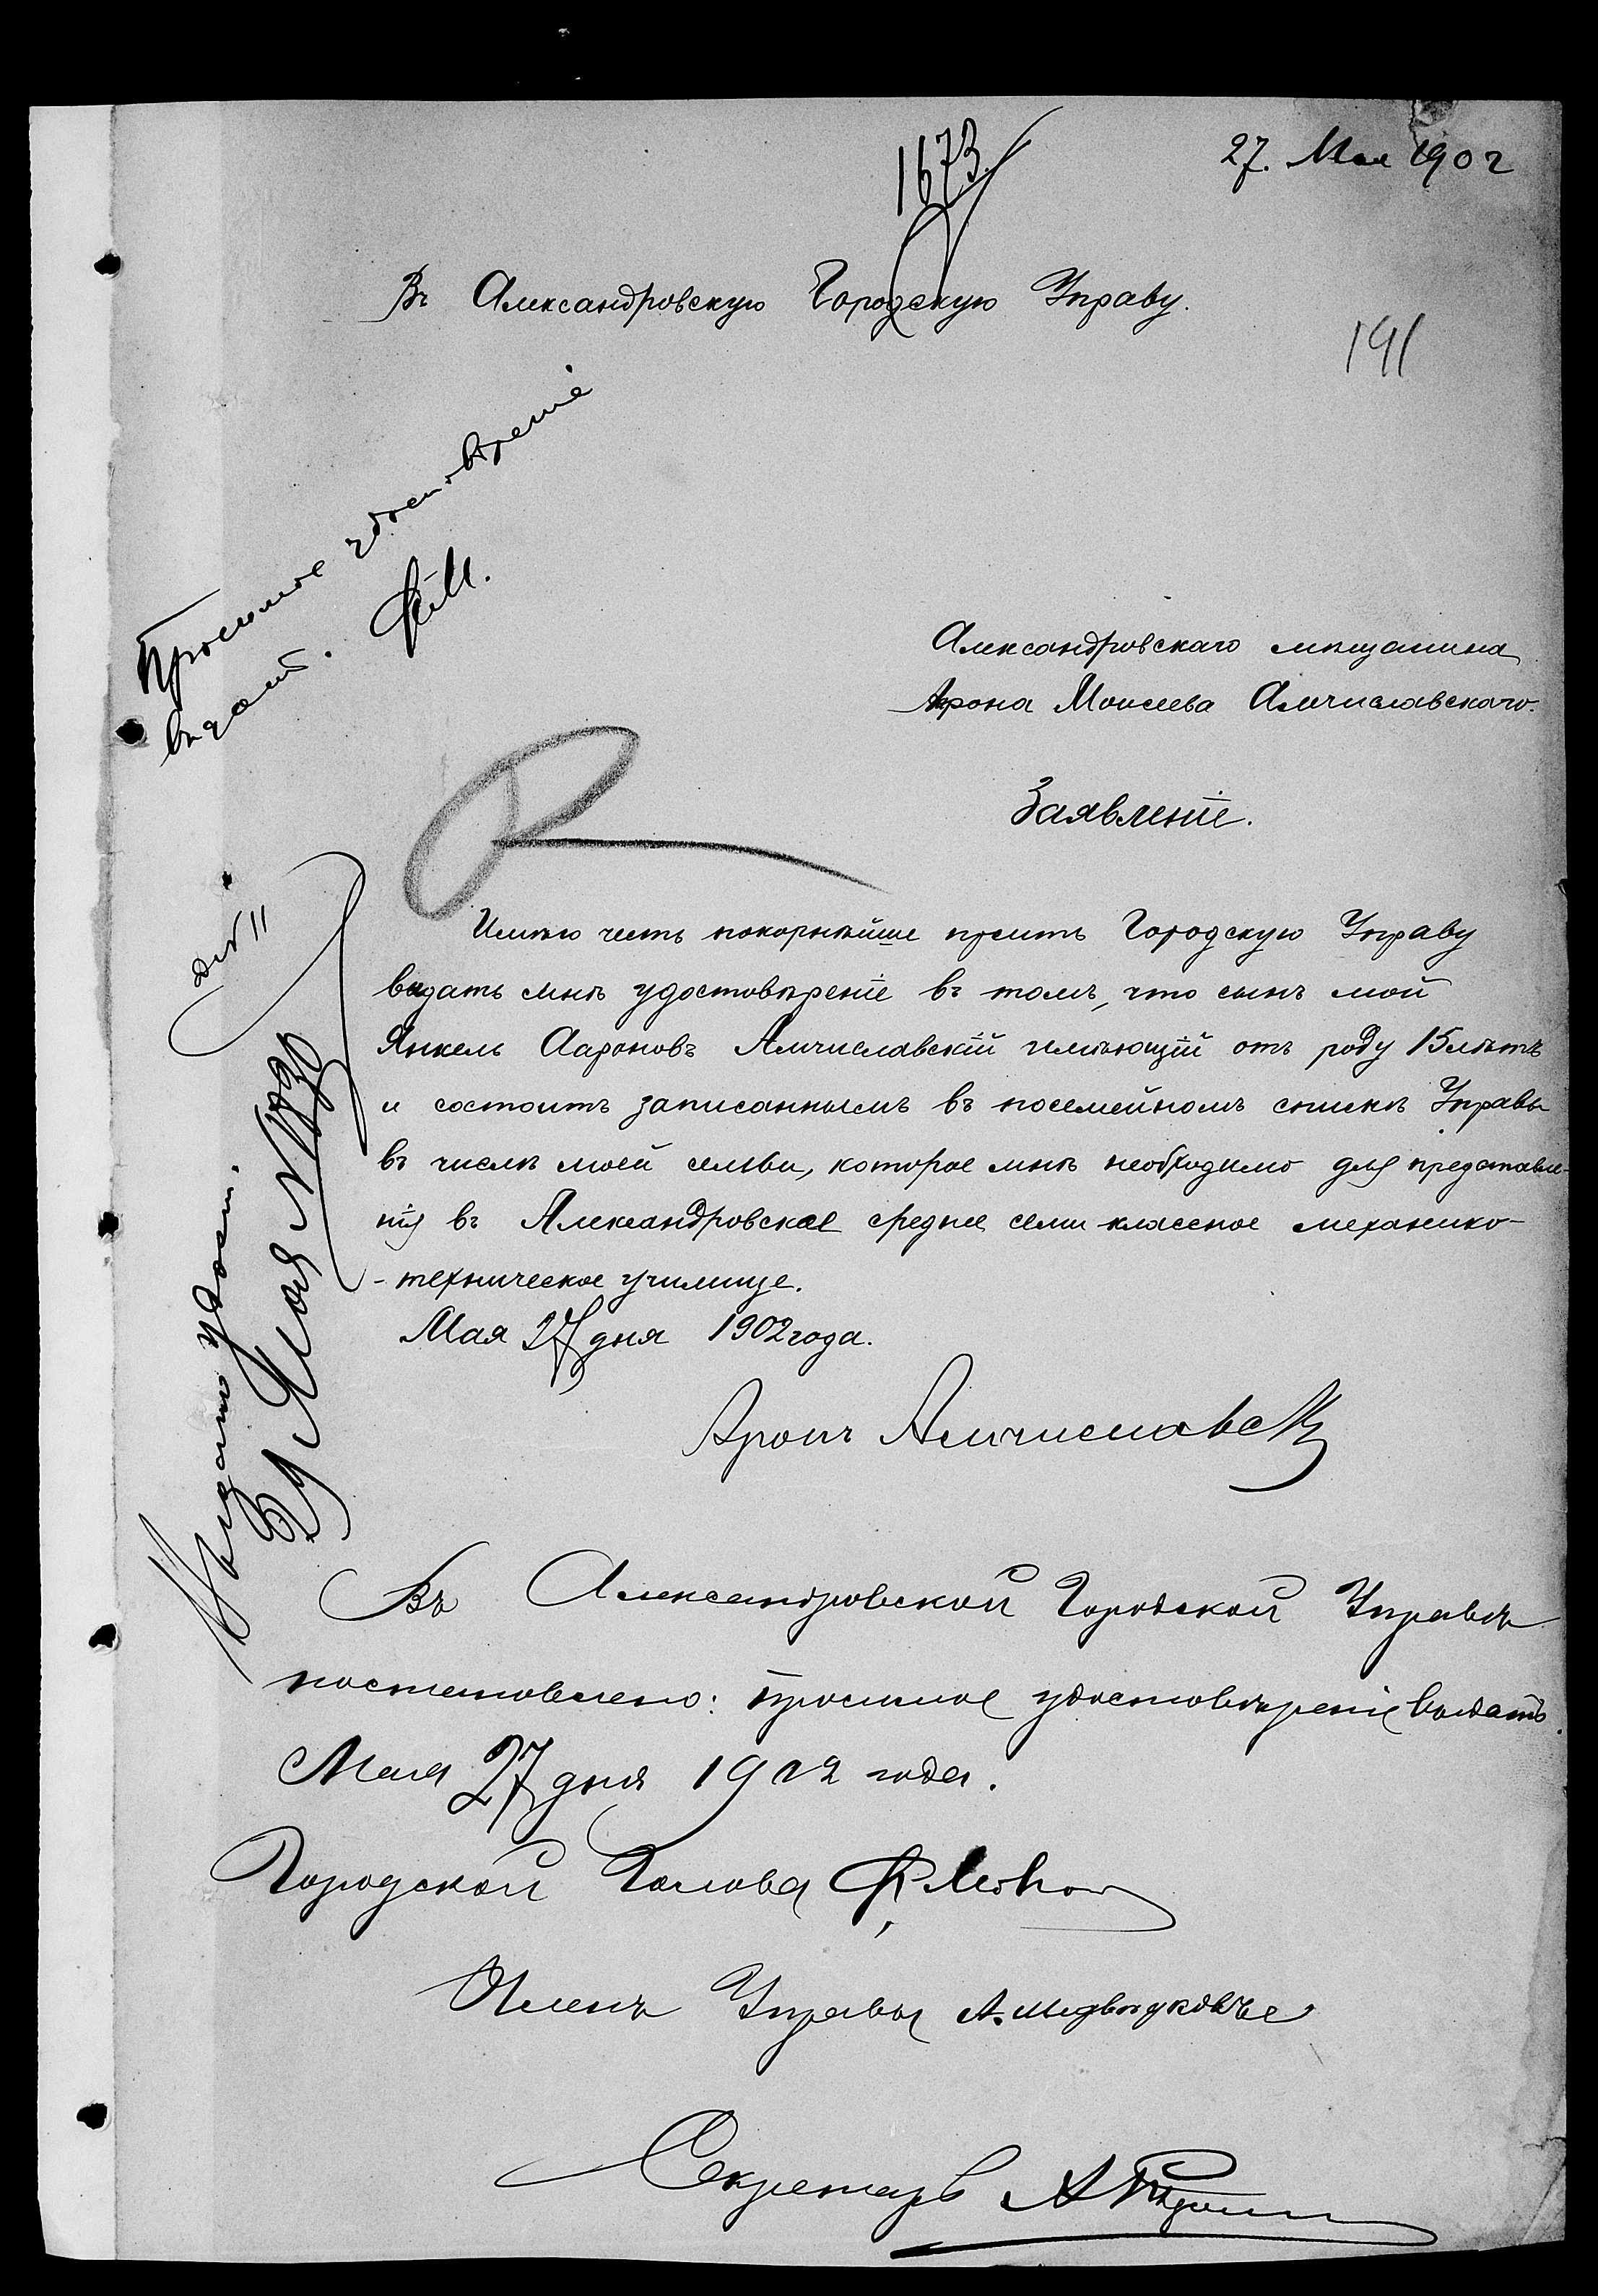 1673
27. Мая 1902
Въ Александровскую Городскую Управу.
191
Просимое удостовѣреніе
выдать. Ф.М.
Александровскаго мѣщанина
Арона Моисеева Амчиславскаго.
Заявленіе.
Имѣю честь покорнѣйше просить Городскую Управу
выдать мнѣ удостовѣреніе въ томъ, что сынъ мой
Янкель Аароновъ Амчиславскій имѣющій отъ роду 15 лѣтъ
и состоитъ записаннымъ въ посемейномъ спискѣ Управы
въ числѣ моей семьи, которое мнѣ необходимо для представле-
нія въ Александровское среднее семи-классное механико-
-техническое училище.
Мая 27 дня 1902 года.
Аронъ Амчиславск
Выдано удост.
27 Мая №
Въ Александровской Городской Управѣ
постановлено: просимое удостовѣреніе выдать.
Мая 27 дня 1902 года.
Городской Голова Ф.
Членъ Управы А.
Секретарь А